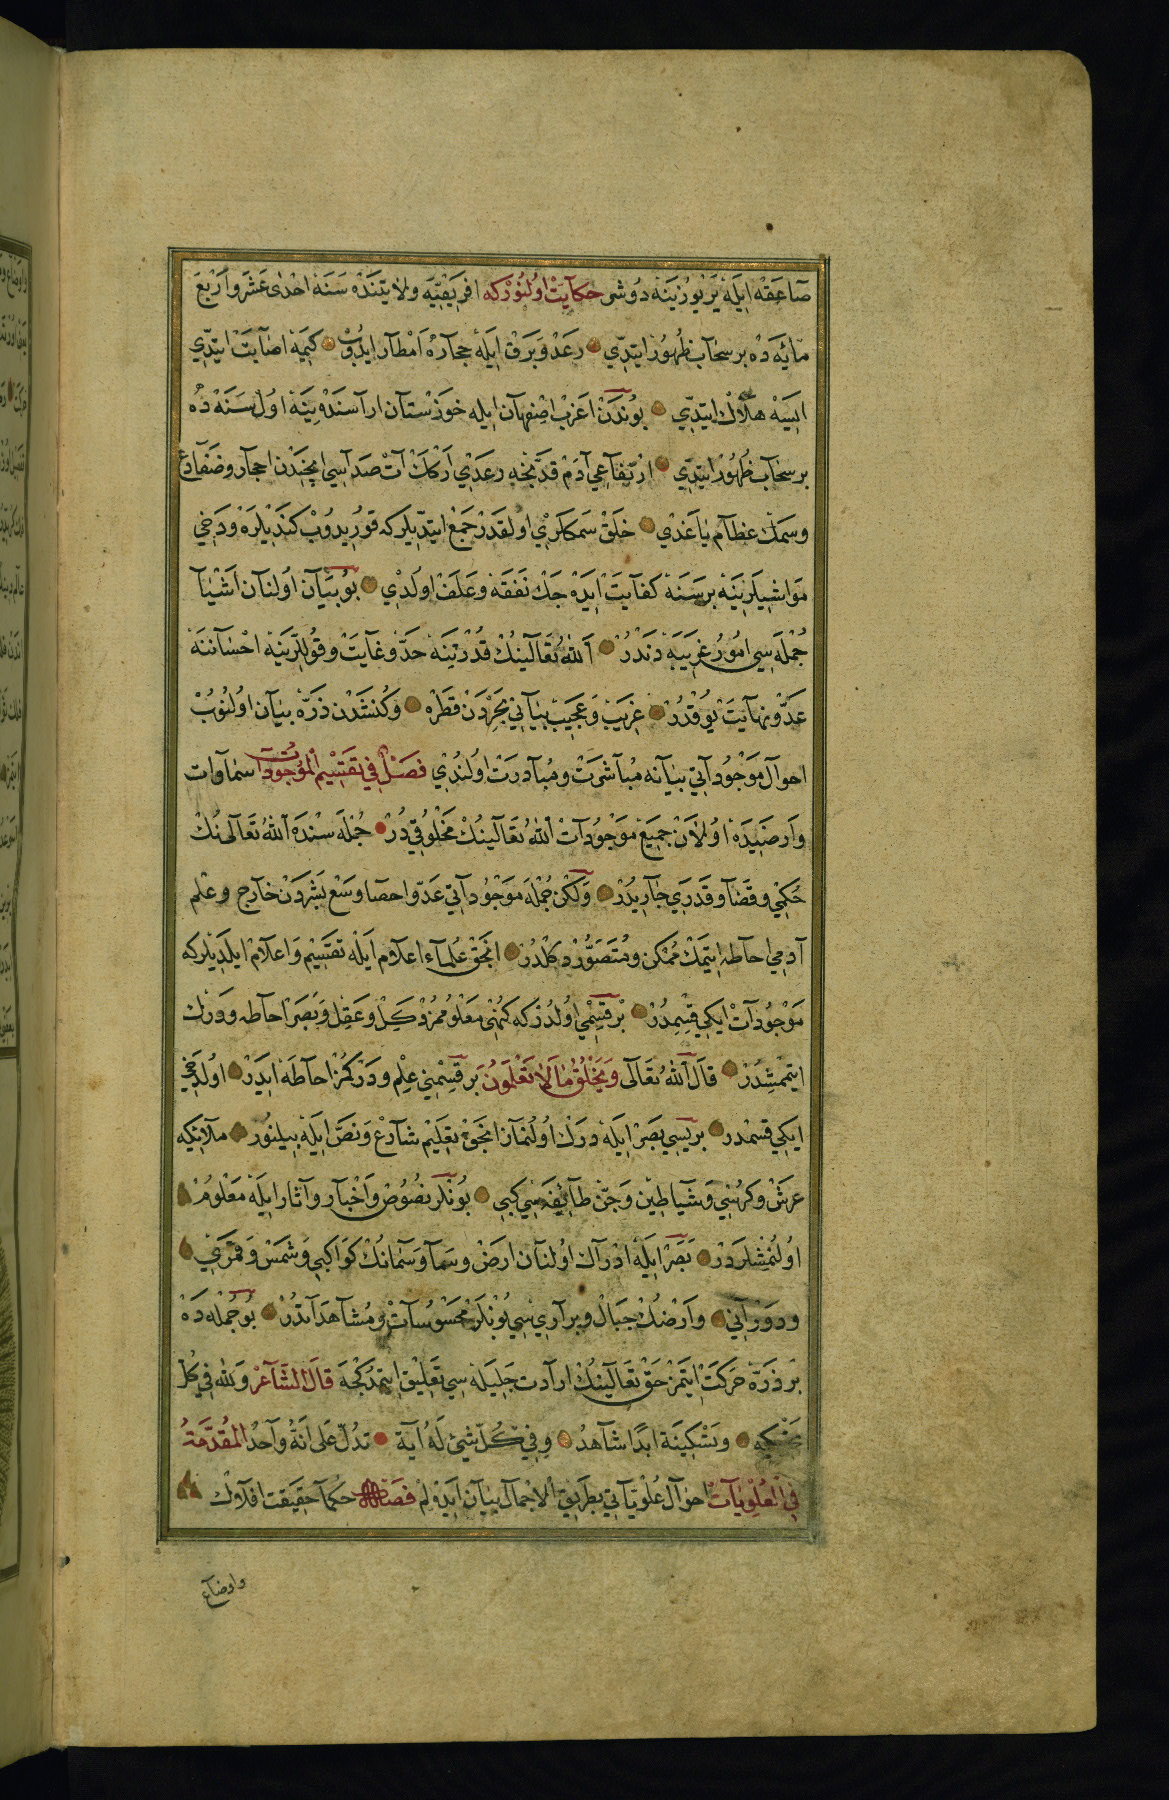 صاعقه ايله ير يوزينه دوشى حكايت اولنوركه افريقيه ولايتنده سنه احدى عشر واربع
مائه ده بر سحاب ظهور ايتدى رعد وبرق ايله حجاره امطار ايدوب كيمه اصابت ايتدى
ايسه هلاك ايتدى بوندن اغرب اصفهان ايله خوزستان اراسنده ينه اول سنه ده
بر سحاب ظهور ايتدى ارتفاعى آدم قد نجه رعدى اركك آت صداسى ايچندن احجار وضفادع
وسمك عظام ياغدى خلق سمكلرى اولقدر جمع ايتديلركه قوريدوب كنديلره ودخى
مواشيلرينه بر سنه كفايت ايده جك نفقه وعلف اولدى بو بيان اولنان اشيا
جمله سى امور غريبه دندر الله تعالينك قدرتنه حد وغايت وقوللرينه احساننه
عد ونهايت يوقدر غريب وعجيب بيانى بحردن قطره وكنشدن ذره بيان اولنوب
احوال موجوداتى بيانه مباشرت ومبادرت اولندى فصل فى تقسيم الموجودات سماوات
وارضيده اولان جميع موجودات الله تعالينك مخلوقيدر جمله سنده الله تعالى نك
حكمى وقضا وقدرى جاريدر ولكن جمله موجوداتى عد واحصا وسع بشردن خارج وعلم
آدمى احاطه ايتمك ممكن ومتصور دكلدر انجق علماء اعلام ايله تقسيم واعلام ايلديلركه
موجودات ايكى قسمدر بر قسمى اولدركه كمنى معلوممز دكل وعقل وبصر احاطه ودرك
ايتممشدر قال الله تعالى ويخلق ما لا تعلمون بر قسمنى علم ودركمز احاطه ايدر اولدخى
ايكى قسمدر بريسى بصر ايله درك اولنماز انجق تعليم شارع ونص ايله بيلنور ملائكه
عرش وكرسى وشياطين وجن طائفه سى كبى بونلر نصوص واخبار وآثار ايله معلوم
اولنمشلردر بصر ايله ادراك اولنان ارض وسما وسمانك كواكبى وشمس وقمرى
ودورانى وارضك جبال وبرارى سى بونلر محسوسات ومشاهداتدر بو جمله ده
بر ذره حركت ايتمز حق تعالينك ارادت جليله سى تعليق ايتمدكجه قال الشاعر ولله فى كل
تحريكه وتسكينة ابدا شاهد وفى كل شئ له آية تدل على انه واحد المقدمة
فى العلويات احوال علوياتى بطريق الاجمال بيان ايده لم فصل حكما حقيقت افلاك
واوضاع